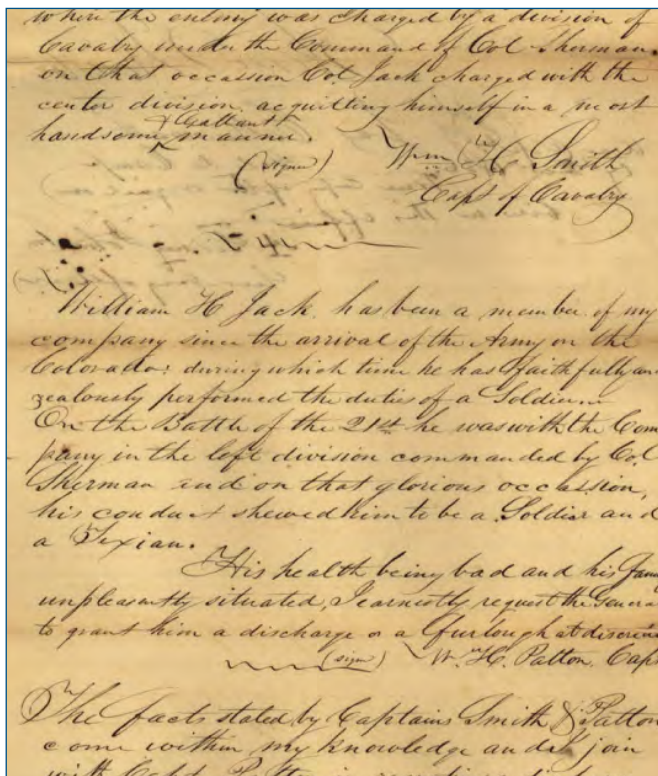 where the enemy was charged by a division of
Cavalry under the Command of Col Sherman.
on that occassion Col. Jack charged with the
center division, acquitting himself in a most
& Gallant
handsome manner.
(signed) Wm H. Smith
Capt of Cavalry
William H Jack, has been a member of my
company since the arrival of the Army on the
Colorado: during which time he has faithfully an
zealously performed the duties of a Soldier...
On the Battle of the 21st he was with the Com
pany in the left division commanded by Col
Sherman and on that glorious occassion,
his conduct shewed him to be a Soldier and
a Texian.
His health being bad and his fam
unpleasantly situated, I earnestly request the Genera
to grant him a discharge or a furlough at discreti
(sign) W. H. Patton Capt
The facts stated by Captains Smith & Patton
come within my knowledge and I join
with Capt Patton in